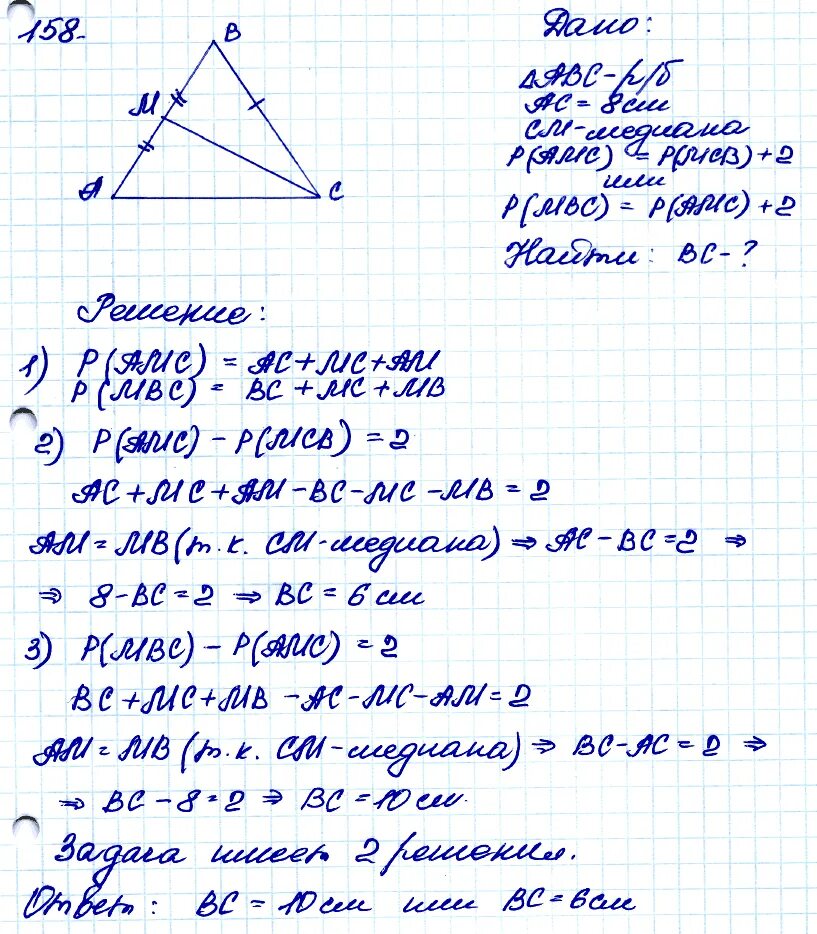 158.
B
M
A
C
Дано:
△ABC - р/б
AC = 8 см
CM - медиана
P(AMC) = P(MCB) + 2
или
P(MBC) = P(AMC) + 2
Найти: BC - ?
Решение:
1) P(AMC) = AC + MC + AM
P(MBC) = BC + MC + MB
2) P(AMC) - P(MCB) = 2
AC + MC + AM - BC - MC - MB = 2
AM = MB (т.к. CM - медиана) ⇒ AC - BC = 2 ⇒
⇒ 8 - BC = 2 ⇒ BC = 6 см
3) P(MBC) - P(AMC) = 2
BC + MC + MB - AC - MC - AM = 2
AM = MB (т.к. CM - медиана) ⇒ BC - AC = 2 ⇒
⇒ BC - 8 = 2 ⇒ BC = 10 см.
Задача имеет 2 решения.
Ответ: BC = 10 см или BC = 6 см